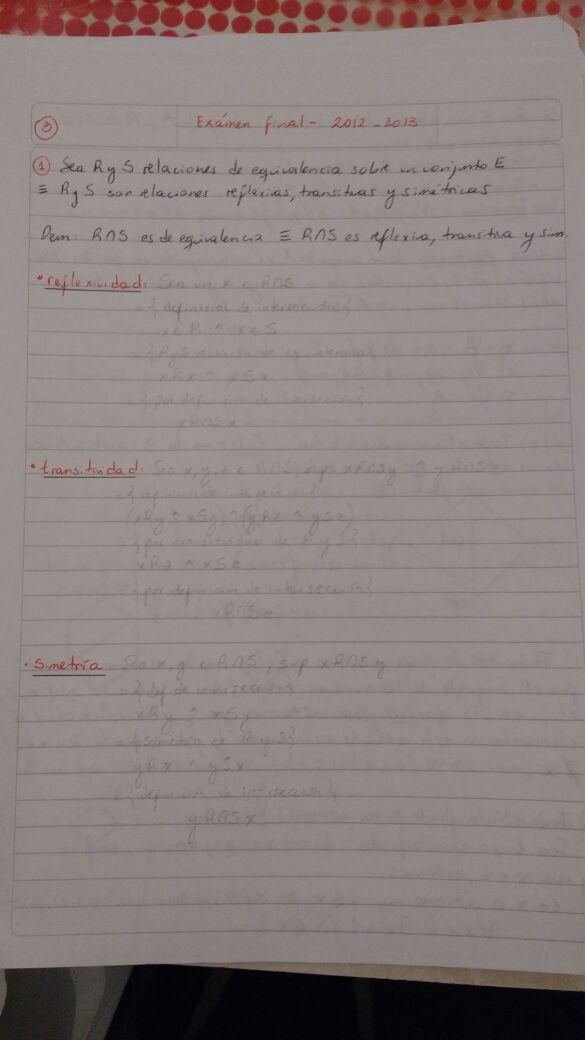 ③ Exámen final - 2012-2013
① Sea R y S relaciones de equivalencia sobre un conjunto E
≡ R y S son relaciones reflexias, transitivas y simétricas
Dem: R∩S es de equivalencia ≡ R∩S es reflexiva, transitiva y sim.
• reflexividad: Sea un x ∈ R∩S
={definición de intersección}
x∈R ^ x∈S
={R y S relación de equivalencia}
xRx ^ xSx
={por definición de intersección}
xR∩Sx
• transitividad: Sea x,y,z ∈ R∩S, sup xR∩Sy ^ yR∩Sz
={definición de intersección}
(xRy ^ xSy) ^ (yRz ^ ySz)
={por transitividad de R y S}
xRz ^ xSz
={por definición de intersección}
xR∩Sz
• Simetría: Sea x,y ∈ R∩S, sup xR∩Sy
={def de intersección}
xRy ^ xSy
={simetría de R y S}
yRx ^ ySx
={definición de intersección}
yR∩Sx